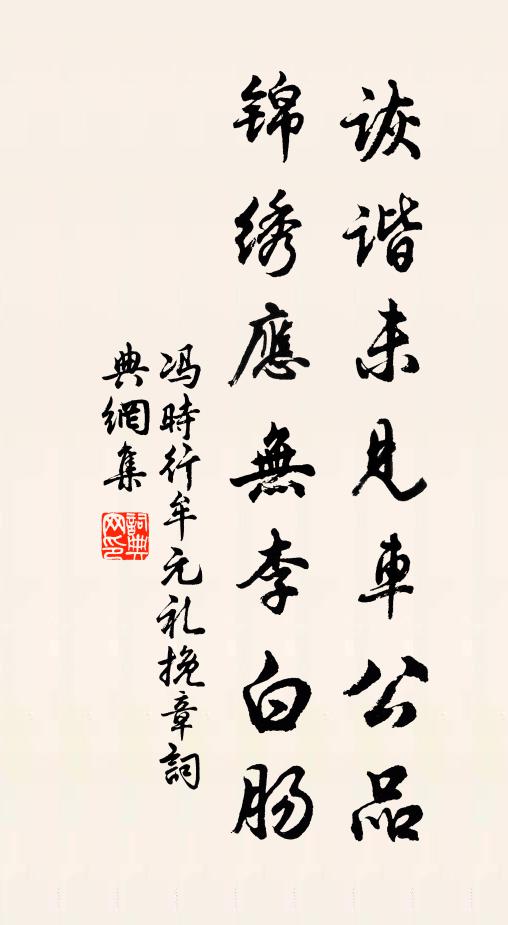 诙谐未见車公品
锦绣應無李白肠
冯時行牟元礼挽章詞
典網集
詞典網印